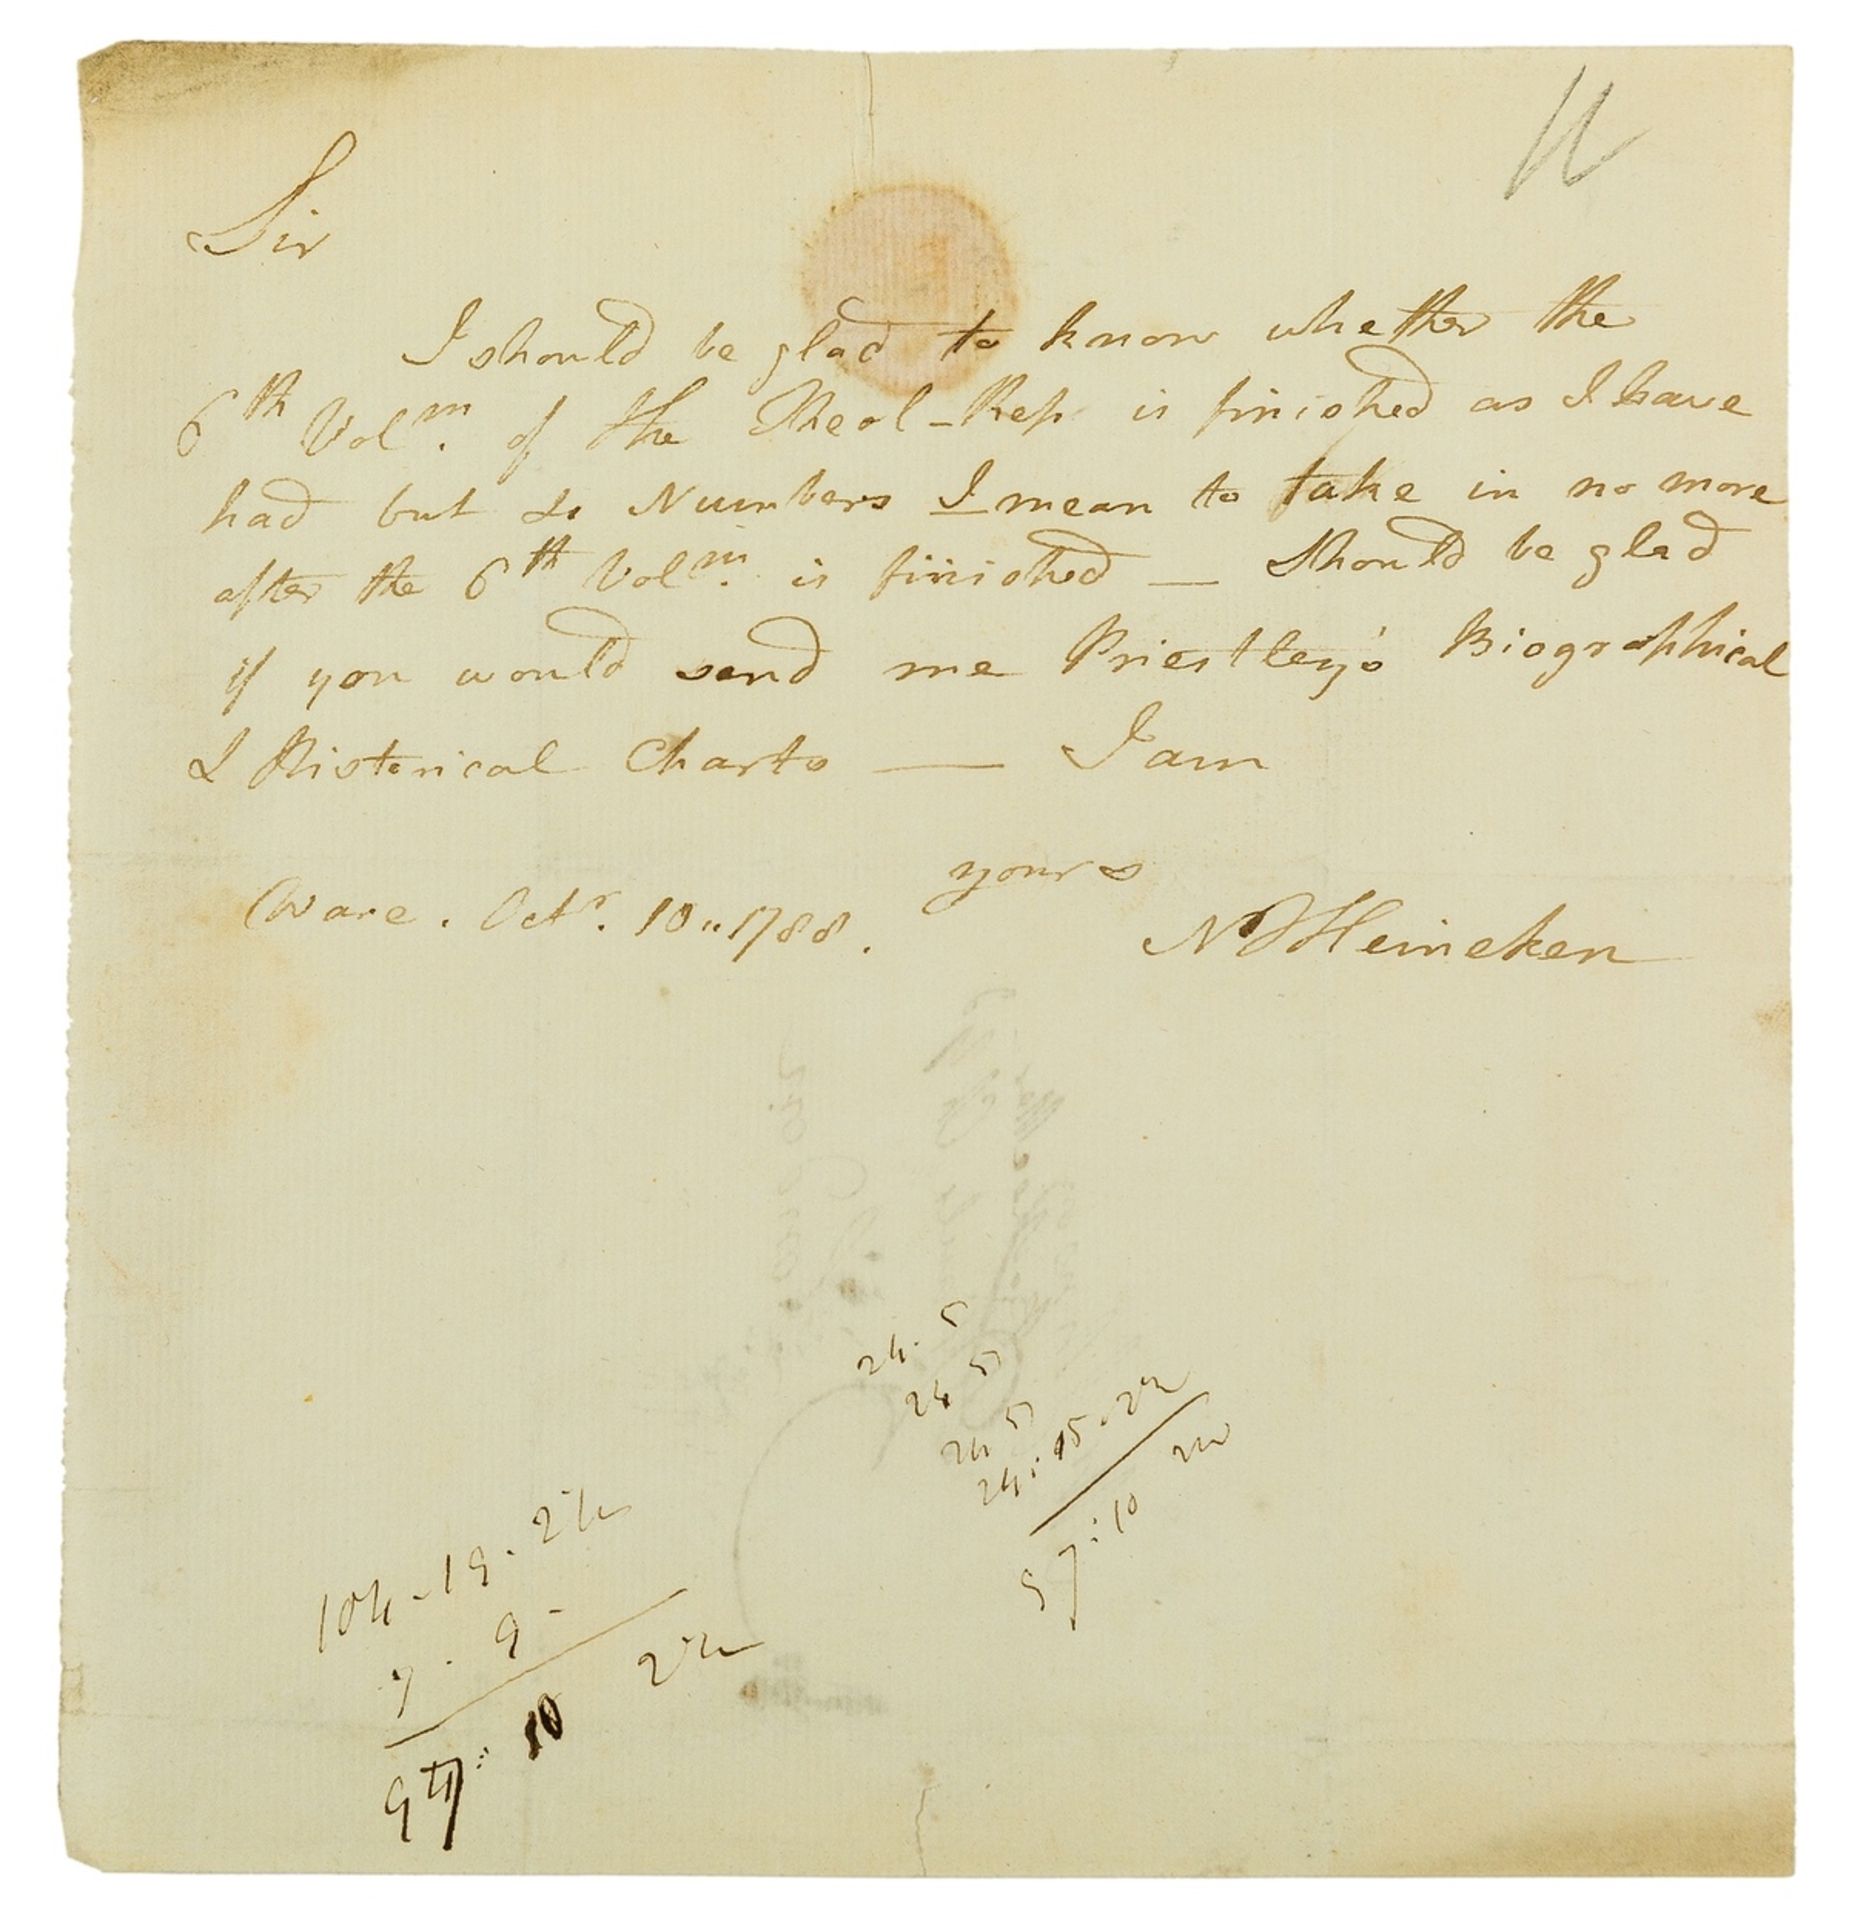 Sir
I should be glad to know whether the
6th Volm. of the Theol-Rep is finished as I have
had but 4 Numbers I mean to take in no more
after the 6th Volm. is finished — Should be glad
if you would send me Priestley's Biographical
& Historical Charts — I am
yours
Ware. Octr. 10"1788.
N Heineken
24. 5
24 5
24 5
24: 15. 2½
97: 10 2½
104-19. 2½
7. 9-
97: 10 2½